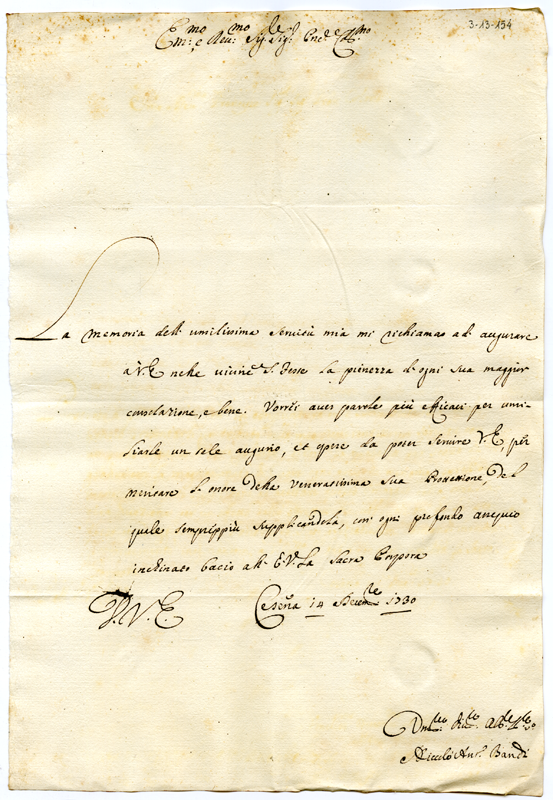 3-13-154
Em:mo e Reu:mo Sig:re Sig:re
La memoria dell' umilissima seruitù mia mi richiamao ad' augurare
à V.E. nelle uicine S. feste la pienezza d'ogni sua maggior
consolazione, e bene. Vorrei auer parole più efficaci per umi-
liarle un tale augurio, et opere da poter seruire V.E., per
meritare l'onore della veneratissima sua Protettione, del
quale semprèppiù supplicandola, con' ogni profondo ossequio
inchinato bacio all' E.V. la Sacra Porpora
D.V.E. Cesena 14 Dicem:re 1730
Niccolò Ant.o Bandi